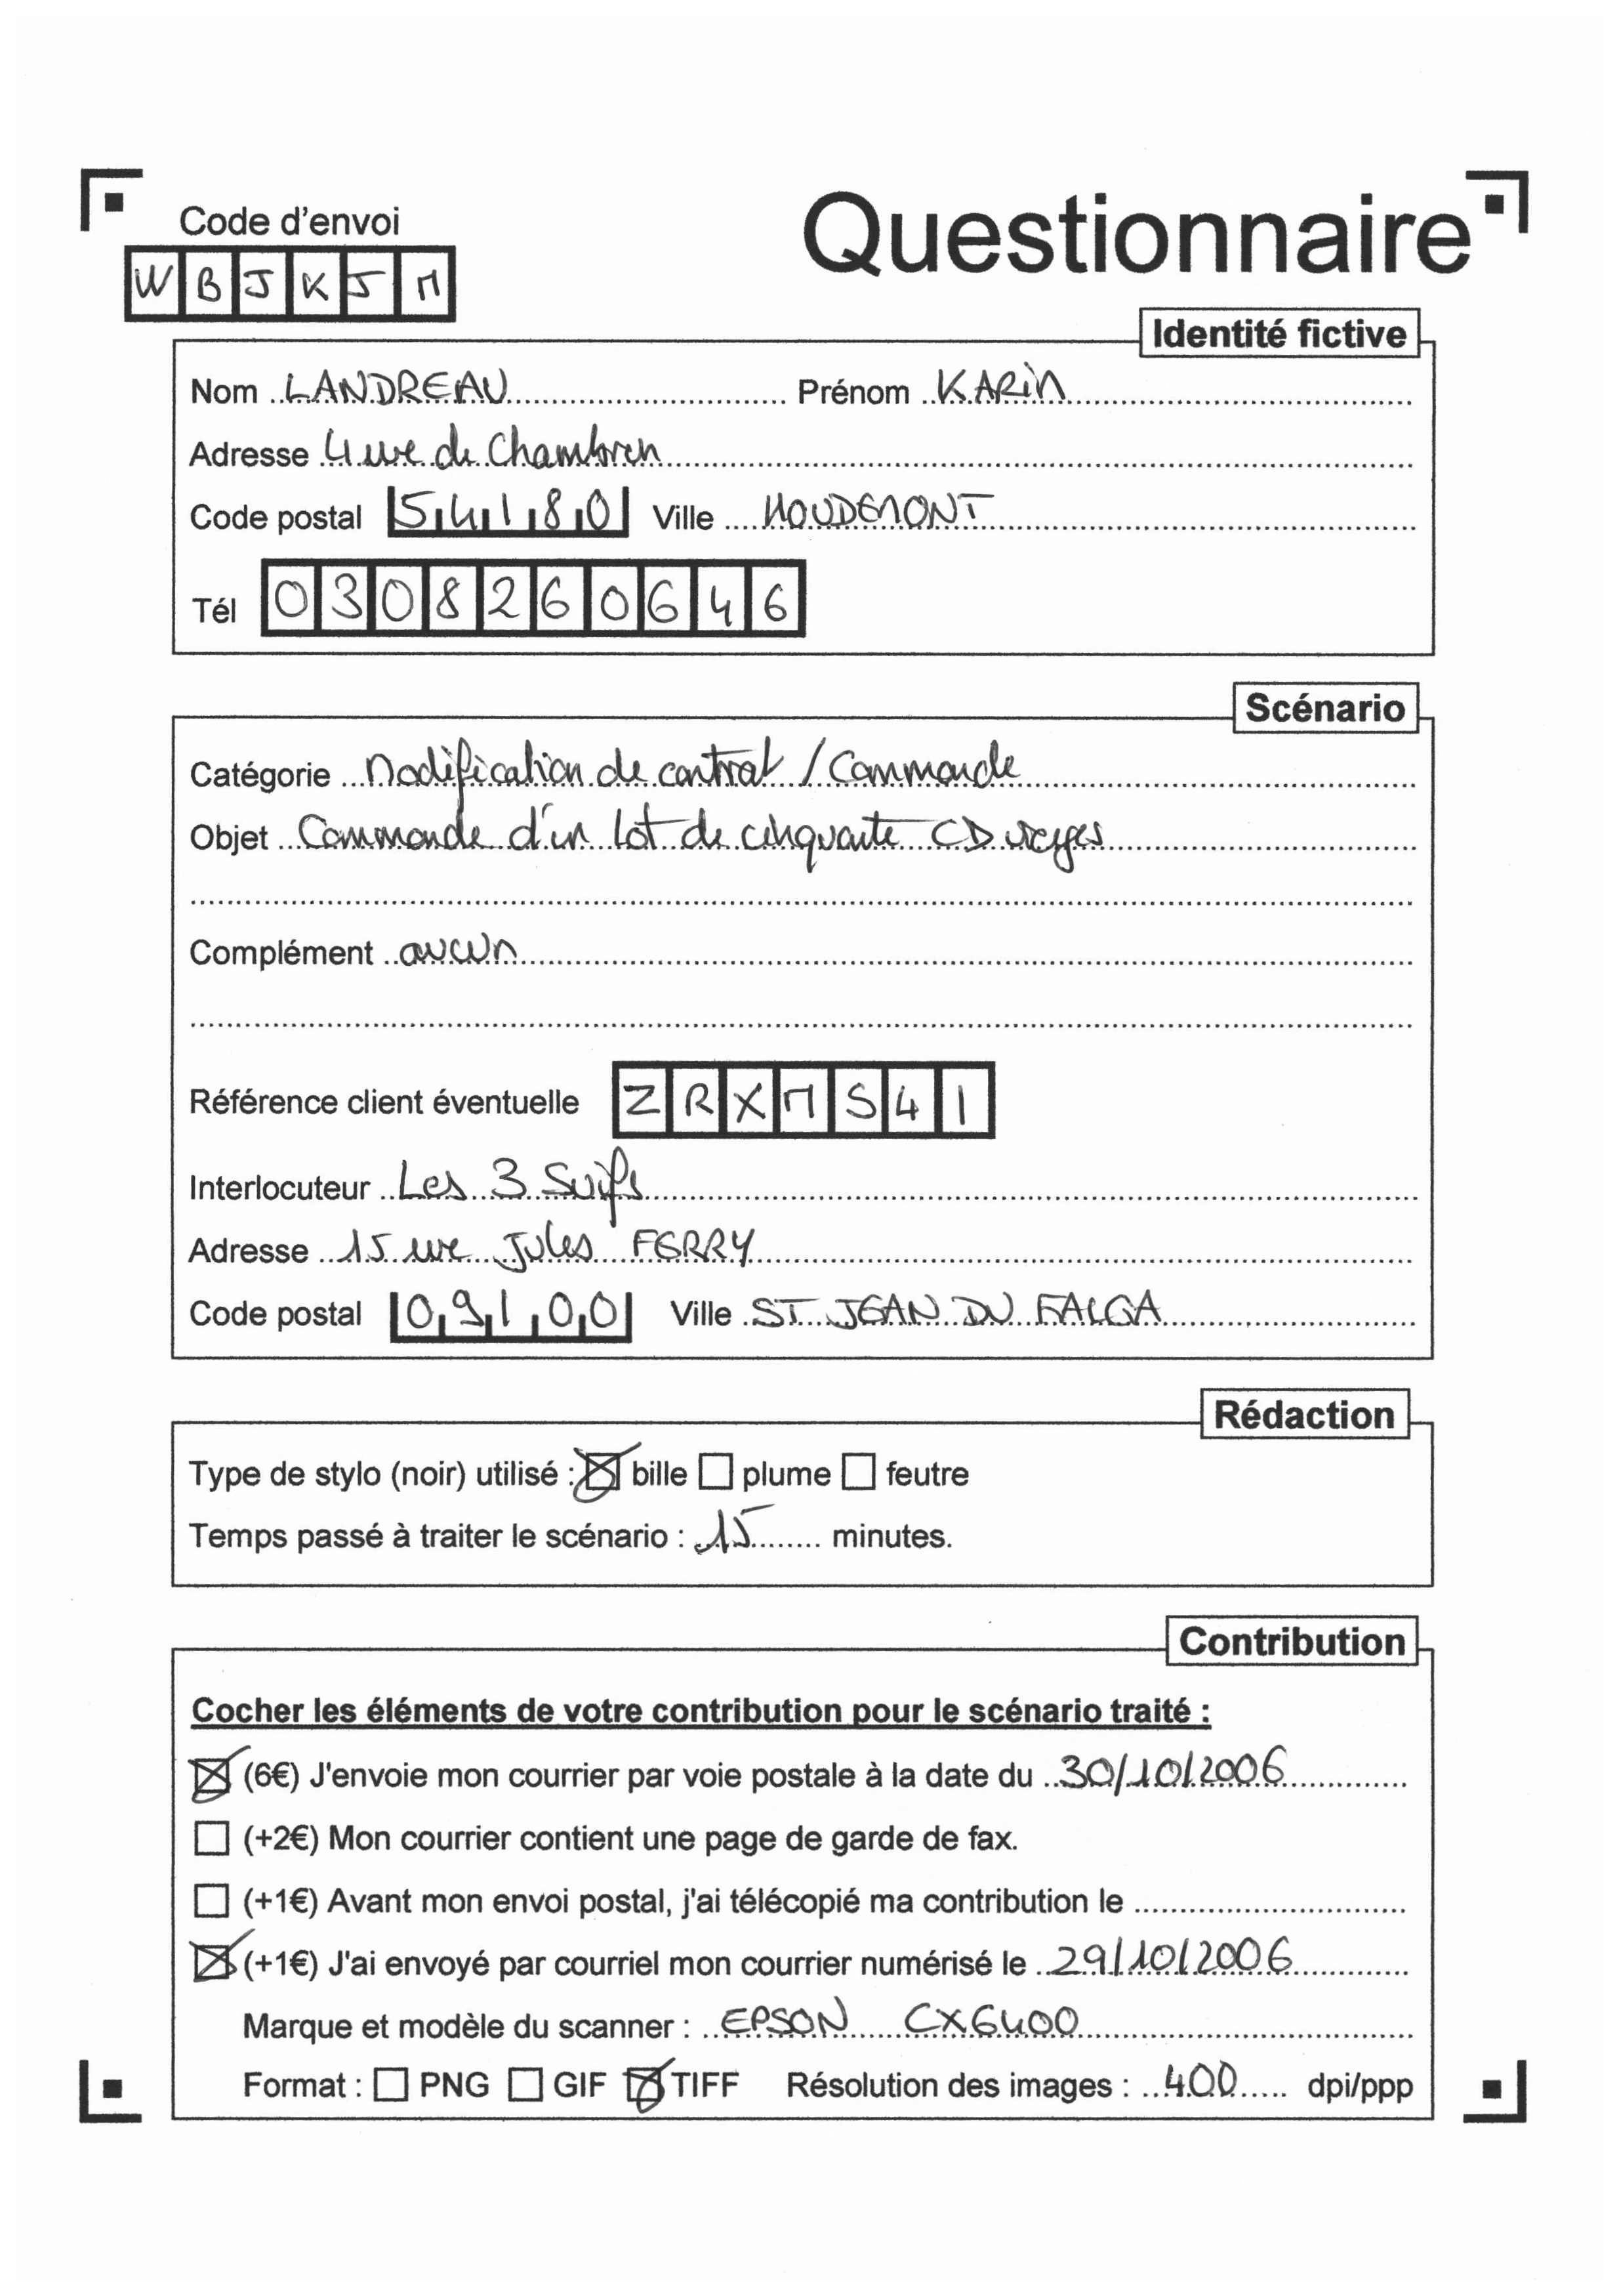 Questionnaire
Code d'envoi
WBJKJM
Identité fictive
Nom LANDREAU Prénom KARIN
Adresse 4 rue de Chambren
Code postal 54180 Ville HOUDEMONT
Tél 0308260646
Scénario
Catégorie Modification de contrat / Commande
Objet Commande d'un lot de cinquante CD vierges
Complément aucun
Référence client éventuelle ZRXMS41
Interlocuteur Les 3 Suifs
Adresse 15 rue Jules FERRY
Code postal 09100 Ville ST JEAN DU FALGA
Rédaction
Type de stylo (noir) utilisé : bille plume feutre
Temps passé à traiter le scénario : 15 minutes.
Contribution
Cocher les éléments de votre contribution pour le scénario traité :
(6€) J'envoie mon courrier par voie postale à la date du 30/10/2006
(+2€) Mon courrier contient une page de garde de fax.
(+1€) Avant mon envoi postal, j'ai télécopié ma contribution le
(+1€) J'ai envoyé par courriel mon courrier numérisé le 29/10/2006
Marque et modèle du scanner : EPSON CX6400
Format : PNG GIF TIFF Résolution des images : 400 dpi/ppp